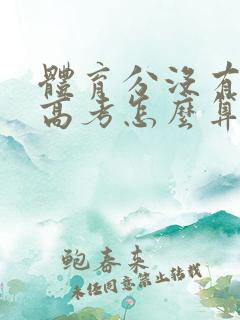 體育分没有
高考怎麼算
鮑春來
未经同意禁止转载